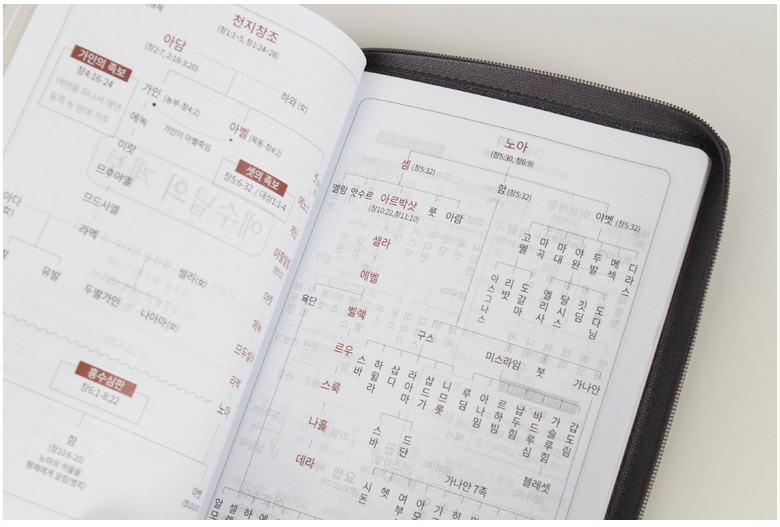 천지창조
(창1:1~5, 창1:24~28)
아담
(창2:7, 2:18-3:20)
하와(女)
가인의 족보
창4:16-24
에덴을 떠나서 에덴
동쪽 놋 땅에 거주
가인 (농부-창4:2)
아벨 (목동-창4:2)
가인이 아벨죽임
에녹
이랏
므후야엘
므드사엘
라멕
셋의 족보
창5:6-32 / 대상1:1-4
아다
씰라(女)
유발
두발가인
나아마(女)
노아
홍수심판
창6:1-8:22
함
(창10:6-20)
노아의 허물을
형제에게 알림(범죄)
노아
(창5:30, 창6:9)
셈 (창5:32)
함 (창5:32)
야벳 (창5:32)
엘람 앗수르 아르박삿 룻 아람
(창10:22,창11:10)
셀라
에벨
욕단
벨렉
르우
스룩
나홀
데라
고멜 마곡 마대 야완 두발 메섹 디라스
아스그나스 리밧 도갈마 엘리사 달시스 깃딤 도다님
구스
미스라임
붓
가나안
스바 하윌라 삽다 라아마 삽드가 니므롯
루딤 아나밈 르하빔 납두힘 바드루심 가슬루힘 갑도림
스바 드단
블레셋
가나안 7족